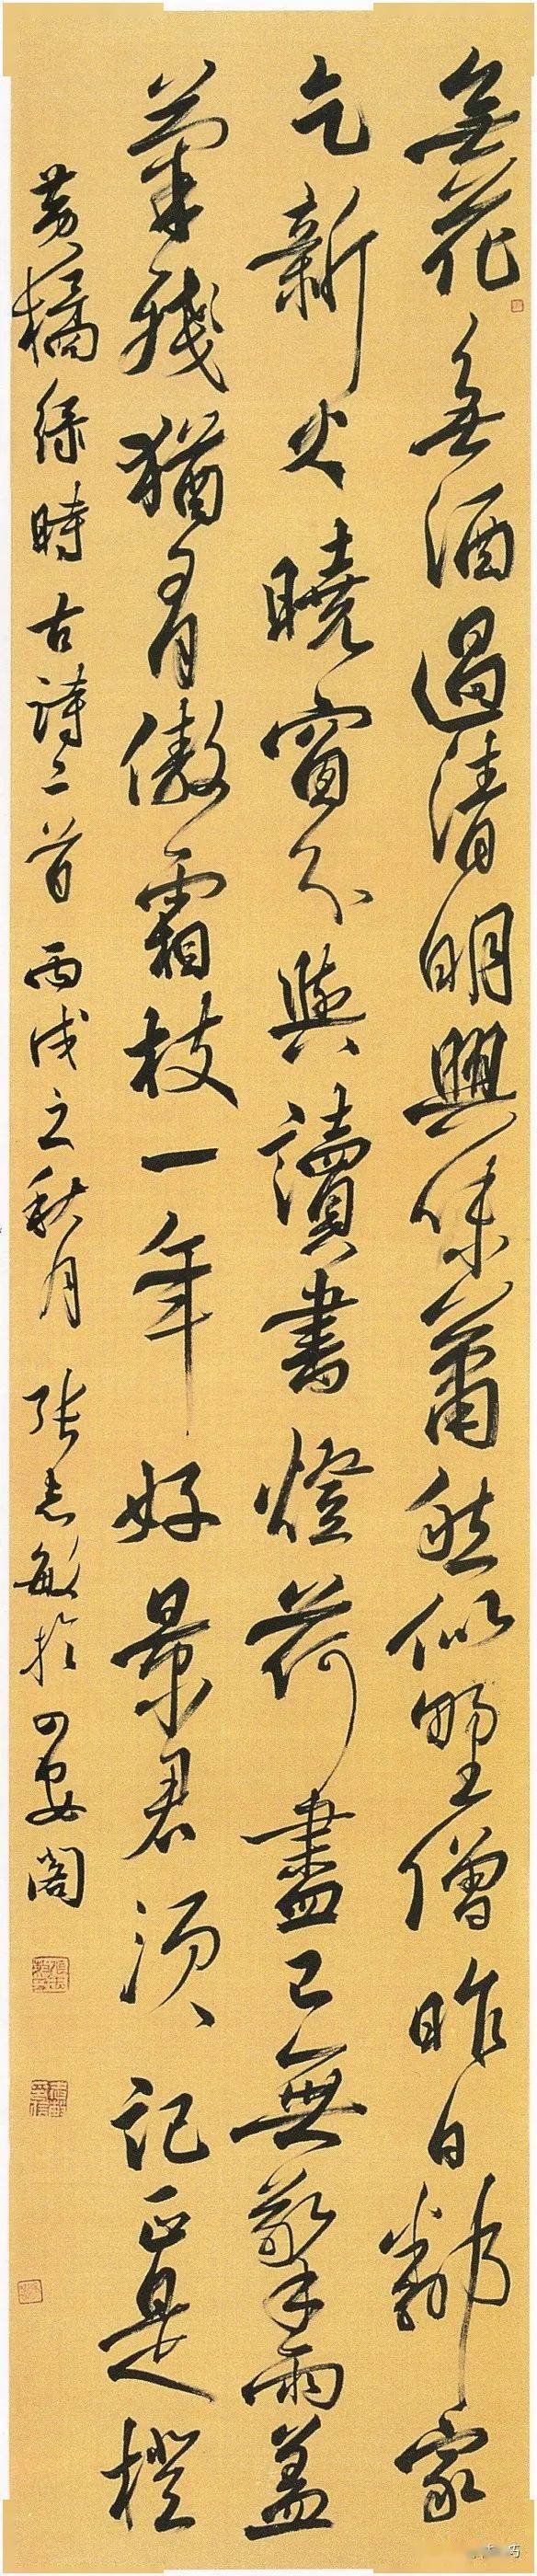 無花無酒過清明興味蕭然似野僧昨日鄰家
乞新火曉窗分與讀書燈荷盡已無擎雨蓋
菊殘猶有傲霜枝一年好景君須記正是橙
黃橘綠時古詩二首丙戌之秋月張志敏於閣